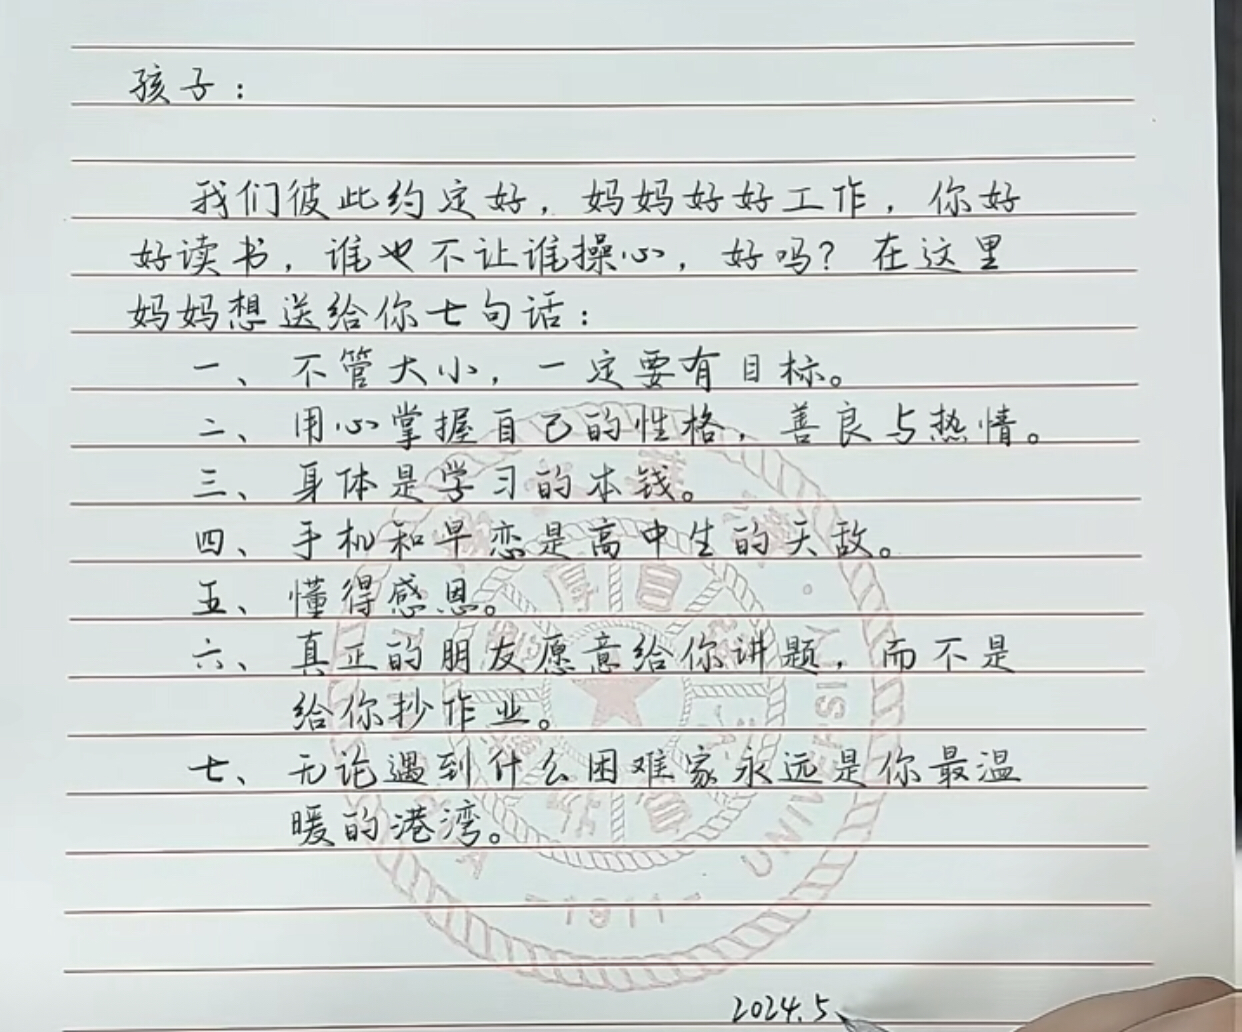 孩子：
我们彼此约定好，妈妈好好工作，你好
好读书，谁也不让谁操心，好吗？在这里
妈妈想送给你七句话：
一、不管大小，一定要有目标。
二、用心掌握自己的性格，善良与热情。
三、身体是学习的本钱。
四、手机和早恋是高中生的天敌。
五、懂得感恩。
六、真正的朋友愿意给你讲题，而不是
给你抄作业。
七、无论遇到什么困难家永远是你最温
暖的港湾。
UNIVERSITY
-1911-
2024.5.